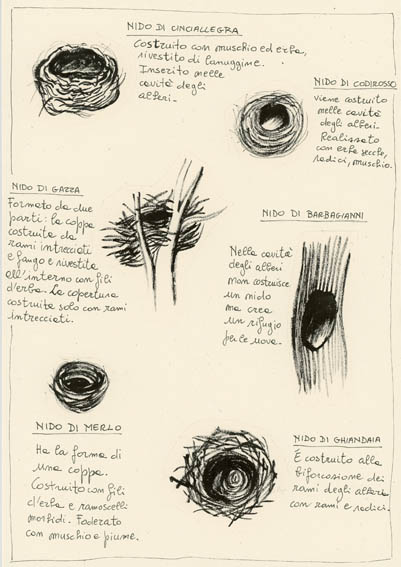 NIDO DI CINCIALLEGRA
Costruito con muschio ed erba,
rivestito di lanuggine.
Inserito nelle
cavità degli
alberi.
NIDO DI CODIROSSO
viene costruito
nelle cavità
degli alberi.
Realizzato
con erbe secche,
radici, muschio.
NIDO DI GAZZA
Formato da due
parti: la coppa
costruita da
rami intrecciati
e fango e rivestita
all'interno con fili
d'erba. La copertura
costruita solo con rami
intrecciati.
NIDO DI BARBAGIANNI
Nelle cavità
degli alberi
non costruisce
un nido
ma crea
un rifugio
per le uova.
NIDO DI MERLO
Ha la forma di
una coppa.
Costruito con fili
d'erba e ramoscelli
morbidi. Foderato
con muschio e piume.
NIDO DI GHIANDAIA
È costruito alla
biforcazione dei
rami degli alberi
con rami e radici.